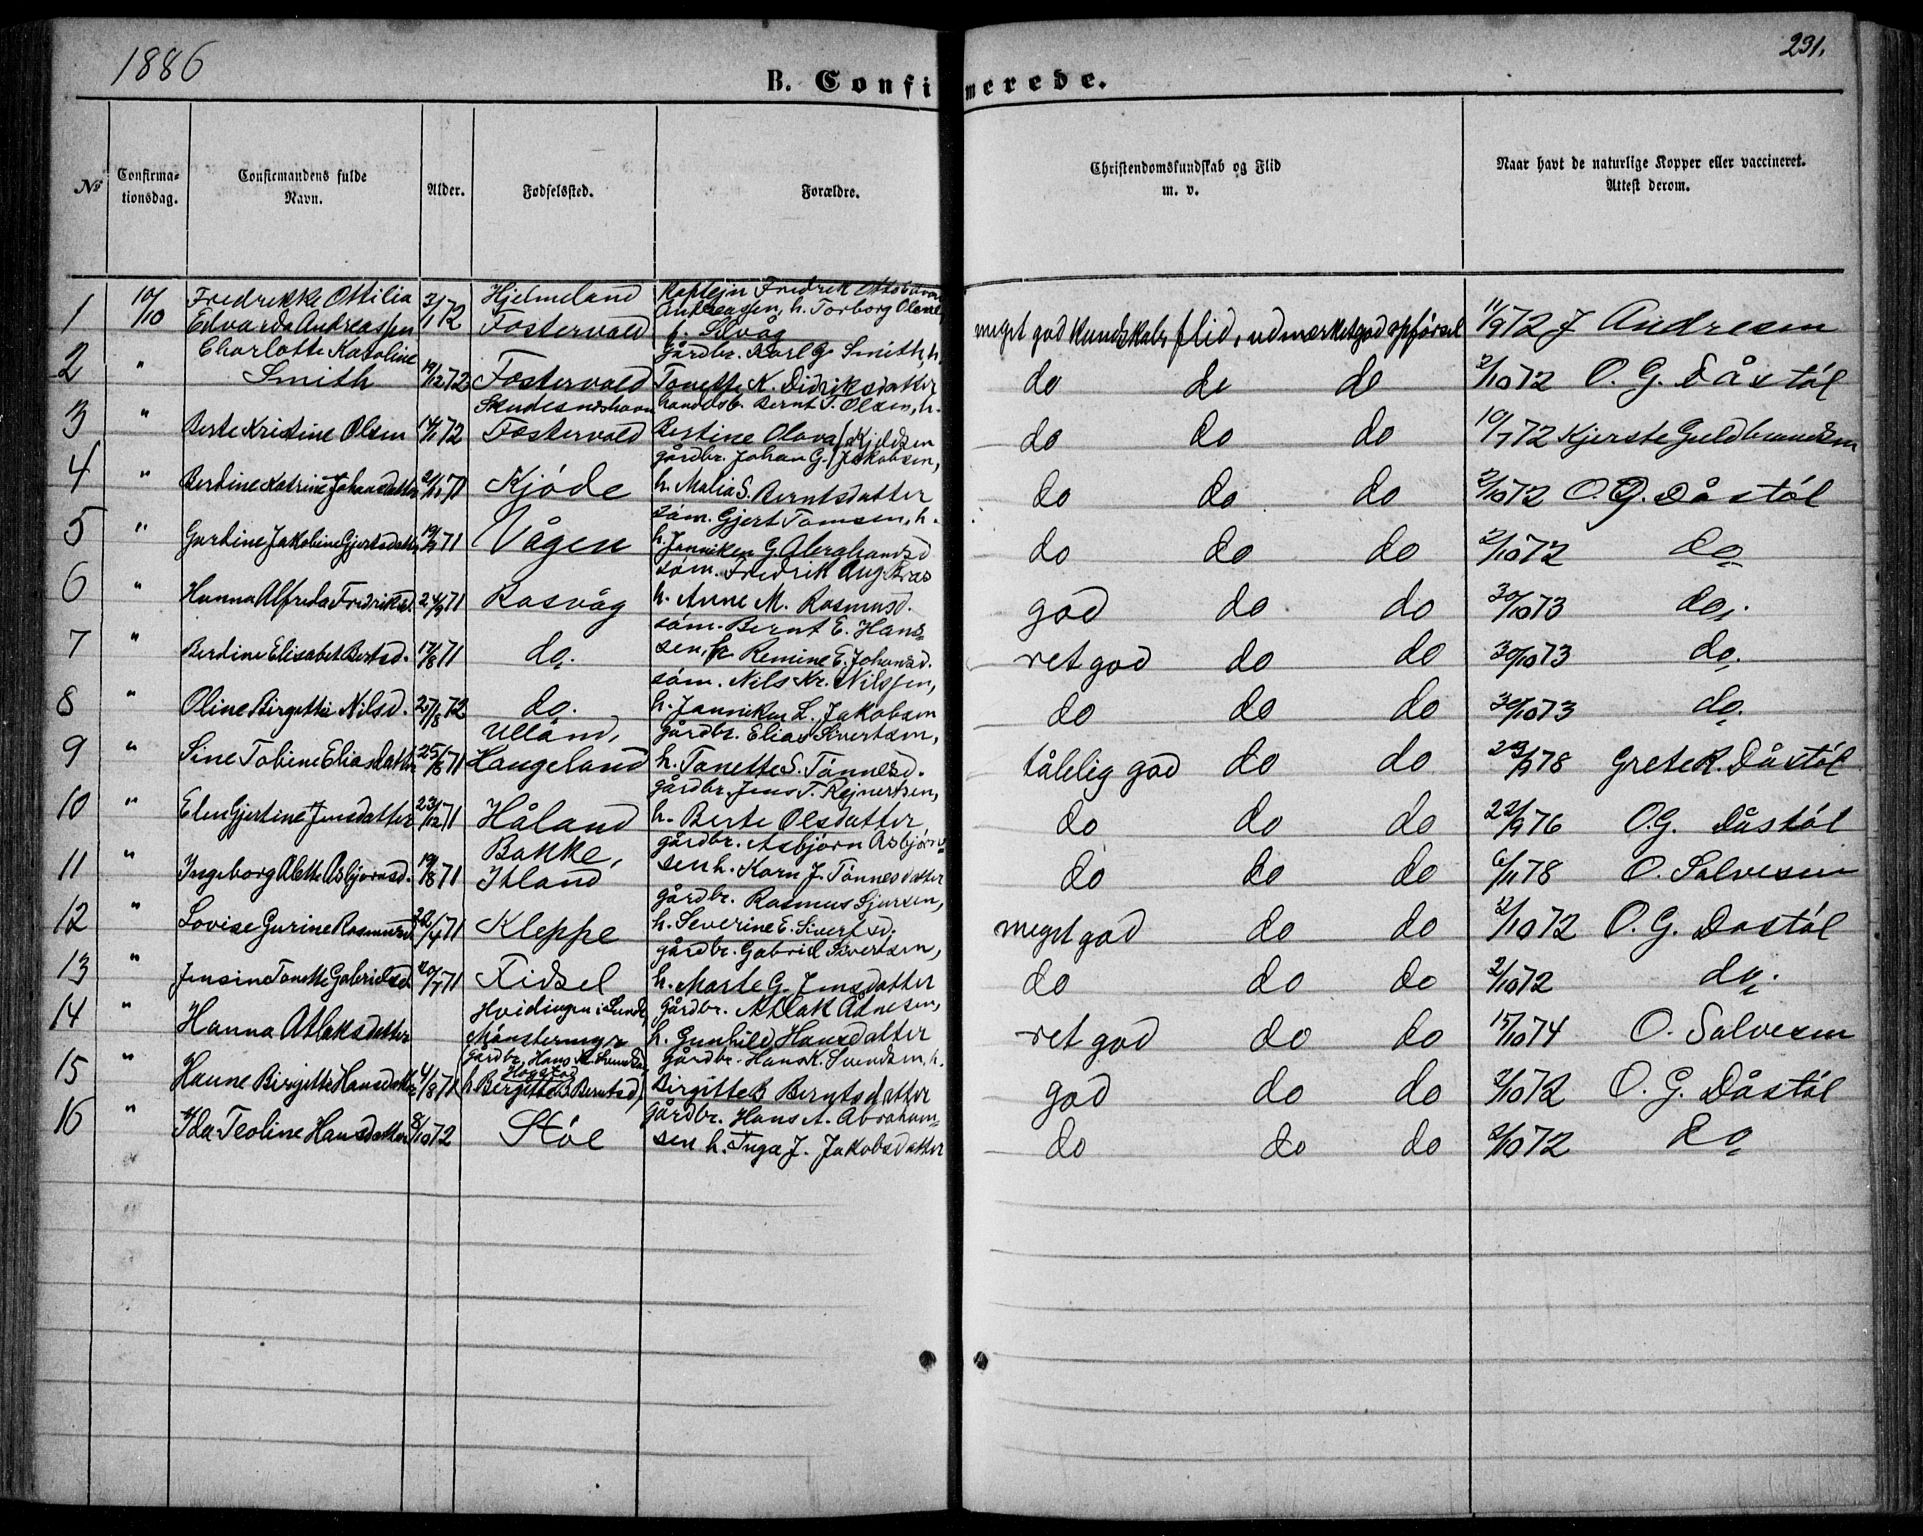 1886
231.
B. Confirmerede.
No
Confirmationsdag.
Confirmandens fulde Navn.
Alder.
Fødselssted.
Forældre.
Christendomskundskab og Flid m. v.
Naar havt de naturlige Kopper eller vaccineret. Attest derom.
1 10/10 Fredrikke Ottilia Edvarda Andreassen 3/1 72 Hjelmeland Fostervold Kaptejn Fredrik Andreassen, h. Torborg f. meget god kundskab, flid, udmærket god opførsel 11/9 72 J Andresen
2 " Charlotte Karoline Smith 19/12 72 Fostervold Gårdbr. Karl G. Smith, h. Tonette K. Didriksdatter do do do 2/10 72 O. G. Dåstøl
3 " Berte Kristine Olsen 14/1 72 Skudesneshavn Fostervold handelsb. Bernt T. Olsen, h. Bertine Olava Kjeldsen do do do 10/7 72 Kjerste Guldbrandsen
4 " Berdine Katrine Johansdatter 71 Kjøde gårdbr. Johan G. Jakobsen, h. Malia S. Berntsdatter do do do 2/10 72 O. G. Dåstøl
5 " Gurdine Jakobine Gjertsdatter 71 Vågen søm. Gjert Tomsen, h. h. Janniken G. do do do 2/10 72 do
6 " Hanna Alfreda Fredriksd. 24/9 71 Rasvåg søm. Fredrik Aug. h. Anne M. Rasmusd. god do do 30/10 73 do.
7 " Berdine Elisabet Bertsd. 17/8 71 do. søm. Bernt E. Hanssen, h. Remine E. Johansd. ret god do do 30/10 73 do.
8 " Oline Birgette Nilsd. 27/8 72 do. søm. Nils Kr. Nilssen, h. Janniken L. Jakobsen do do do 30/10 73 do.
9 " Sine Tobine Eliasdatter 25/8 71 Ulland, Haugeland gårdbr. Elias Sivertsen, h. Tonette S. Tønnesd. tålelig god do do 23/9 78 Grete R. Dåstøl
10 " Elen Gjertine Jensdatter 23/12 71 Håland gårdbr. Jens T. Rejnertsen, h. Berte Olsdatter do do do 22/9 76 O.G. Dåstøl
11 " Ingeborg Alette Asbjørnsd. 19/8 71 Bakke, Itland gårdbr. Asbjørn Asbjørnsen h. Karn J. Tønnesdatter do do do 6/11 78 O. Salvesen
12 " Lovise Gurine Rasmusd. 22/4 71 Kleppe gårdbr. Rasmus Sjursen, h. Severine E. Sivertsd. meget god do do 2/10 72 O. G. Dåstøl
13 " Jensine Tonette Gabrielsd. 20/7 71 Fidsel gårdbr. Gabriel Sivertsen, h. Marte G. Jensdatter do do do 2/10 72 do.
14 " Hanna Atlaksdatter Hvidingen i Månstermyr gårdbr. Atlak Ådnesen, h. Gunhild Hansdatter ret god do do 15/10 74 O. Salvesen
15 " Hanne Birgitte Hansdatter 4/8 71 (Gårdbr. Hans K. Svendsen, Høgstad h. Birgitte B. Berntsd) gårdbr. Hans K. Svendsen, h. Birgitte B Berntsdatter god do do 2/10 72 O. G. Dåstøl
16 " Ida Teoline Hansdatter 8/10 72 Støl gårdbr. Hans A. Abrahamsen h. Inga J. Jakobsdatter do do do 2/10 72 do